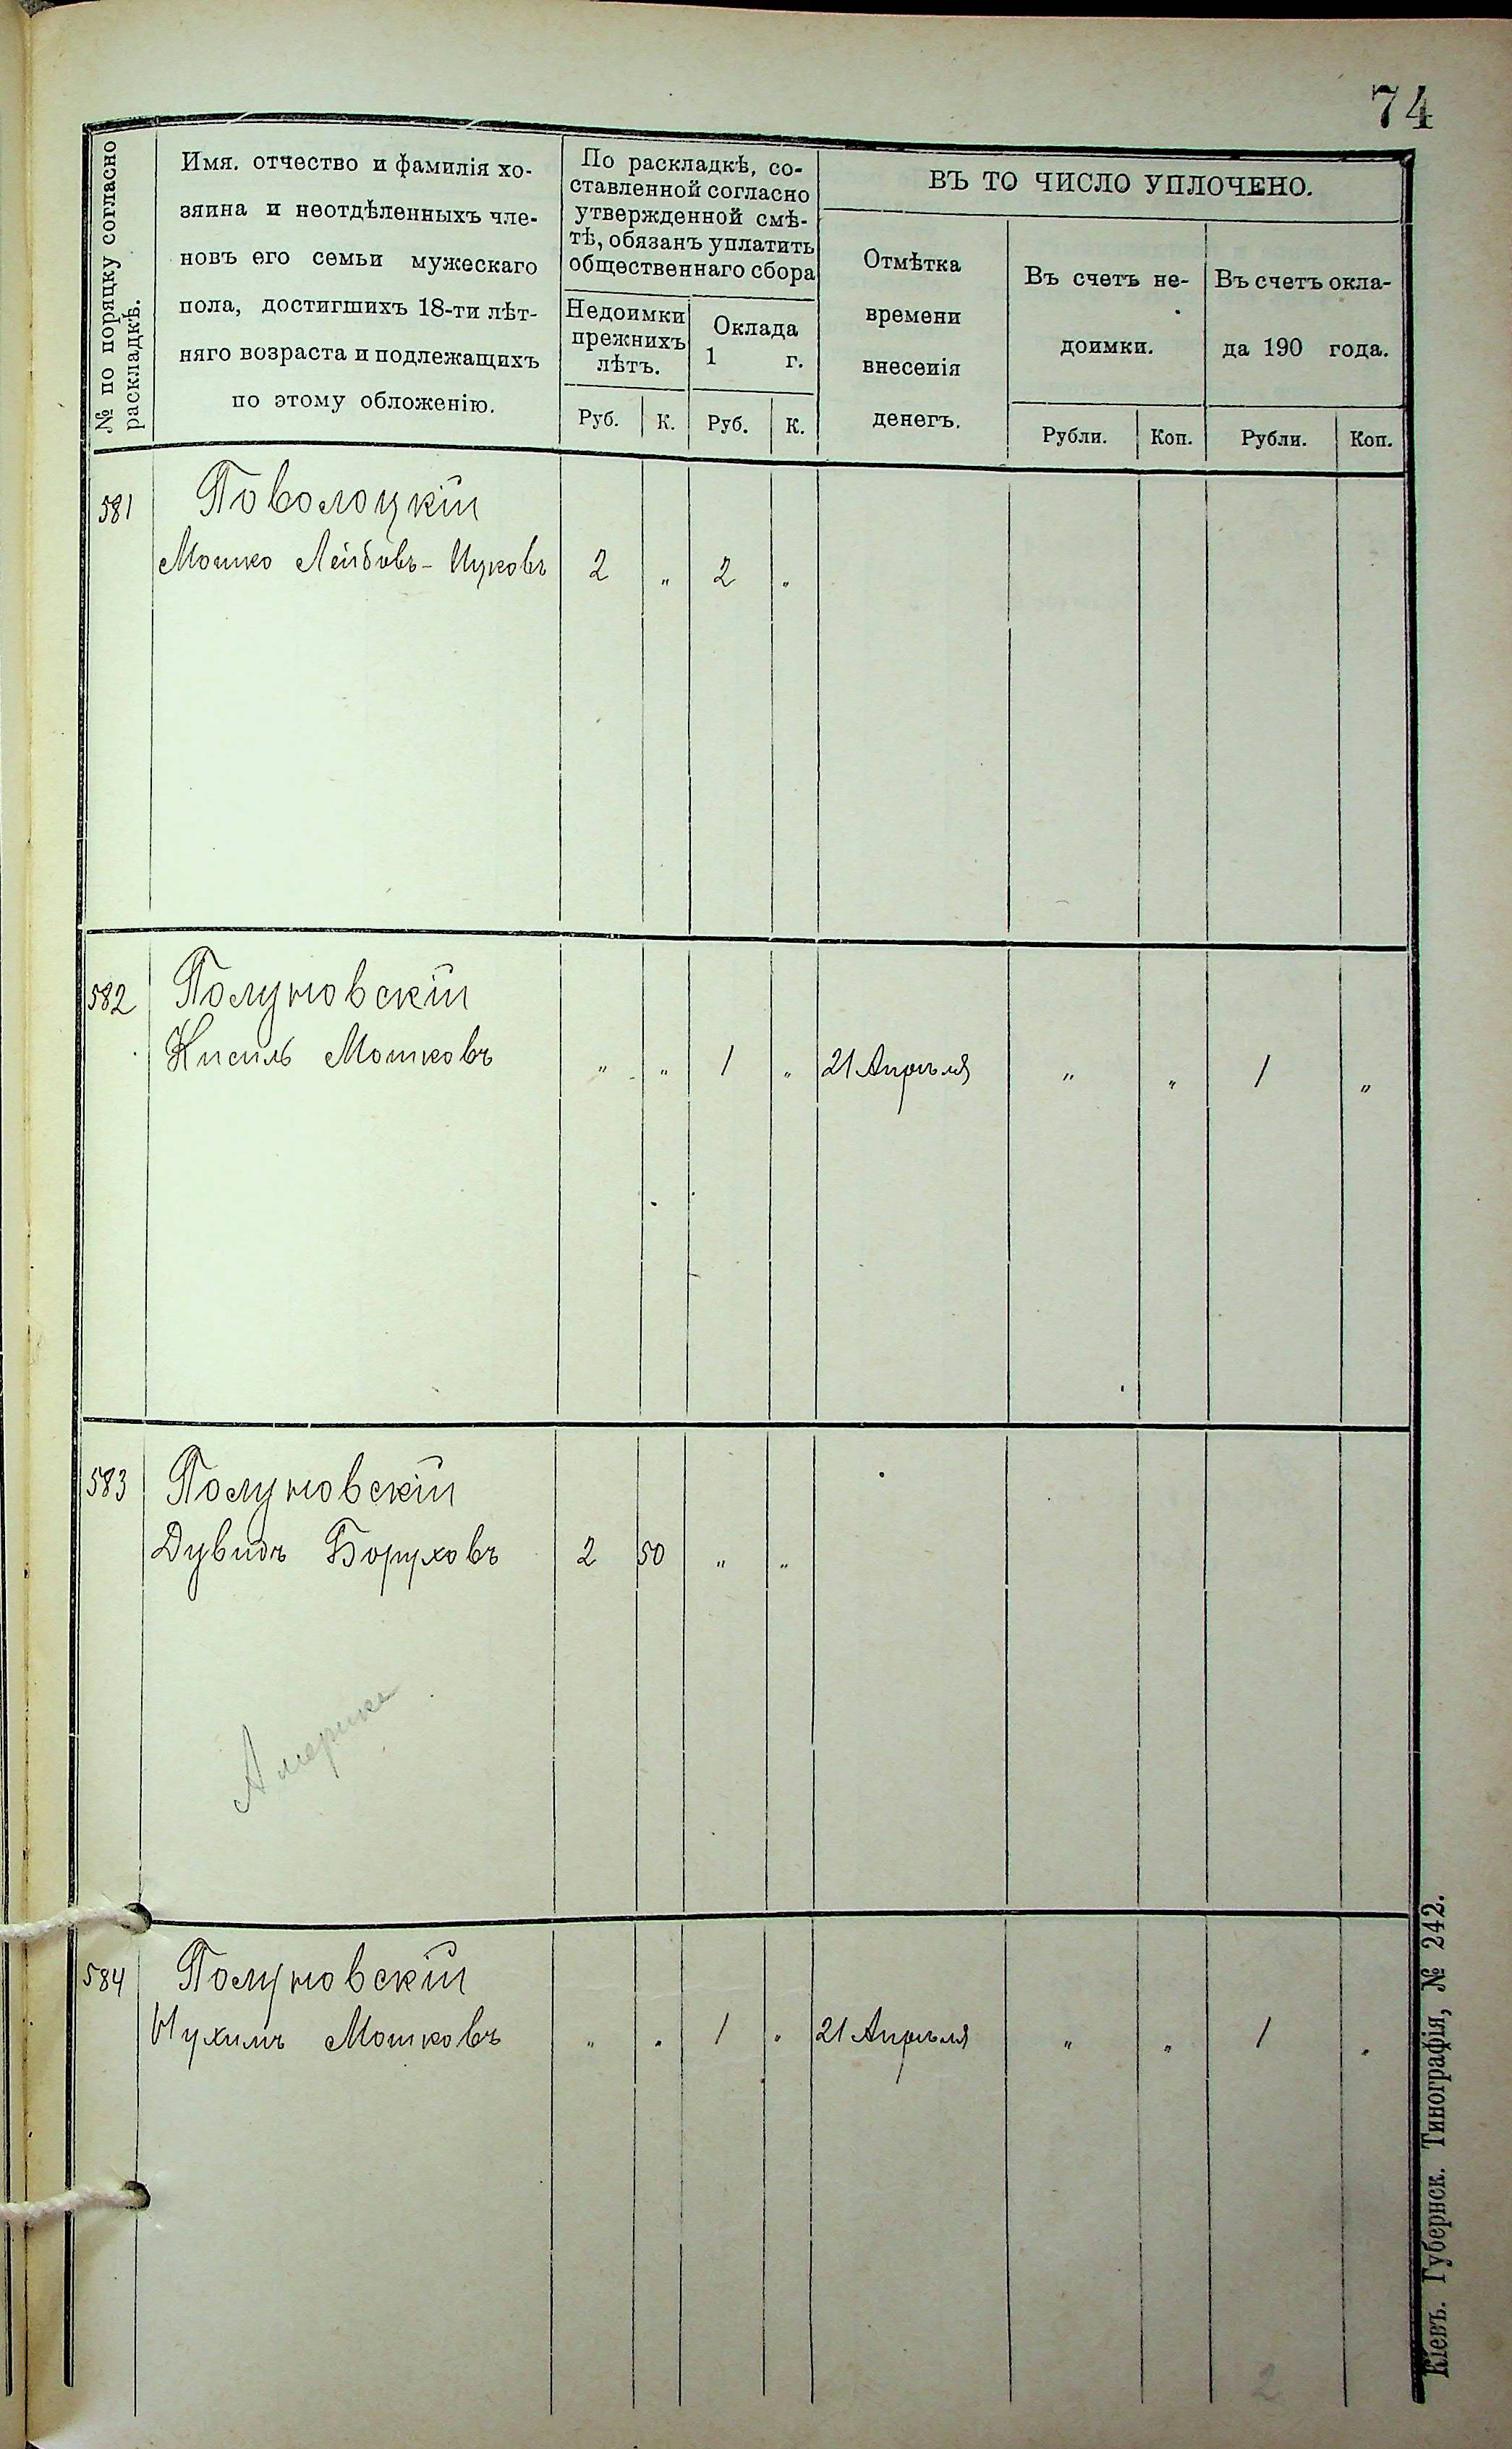 74
№ по порядку согласно
раскладкѣ.
Имя. отчество и фамилія хо-
зяина и неотдѣленныхъ чле-
новъ его семьи мужескаго
пола, достигшихъ 18-ти лѣт-
няго возраста и подлежащихъ
по этому обложенію.
По раскладкѣ, со-
ставленной согласно
утвержденной смѣ-
тѣ, обязанъ уплатить
общественнаго сбора
Недоимки
прежнихъ
лѣтъ.
Оклада
1 г.
Руб. К. Руб. К.
ВЪ ТО ЧИСЛО УПЛОЧЕНО.
Отмѣтка
времени
внесенія
денегъ.
Въ счетъ не-
доимки.
Въ счетъ окла-
да 190 года.
Рубли. Коп. Рубли. Коп.
581 Поволоцкій
Мошко Лейбовъ-Ицковъ 2 " 2 "
582 Полуновскій
Кисиль Мошковъ " " 1 " 21 Апрѣля " " 1 "
583 Полуновскій
Дувидъ Боруховъ 2 50 " "
Америка
584 Полуновскій
Нухимъ Мошковъ " " 1 " 21 Апрѣля " " 1 "
2
Кіевъ. Губернск. Типографія, № 242.